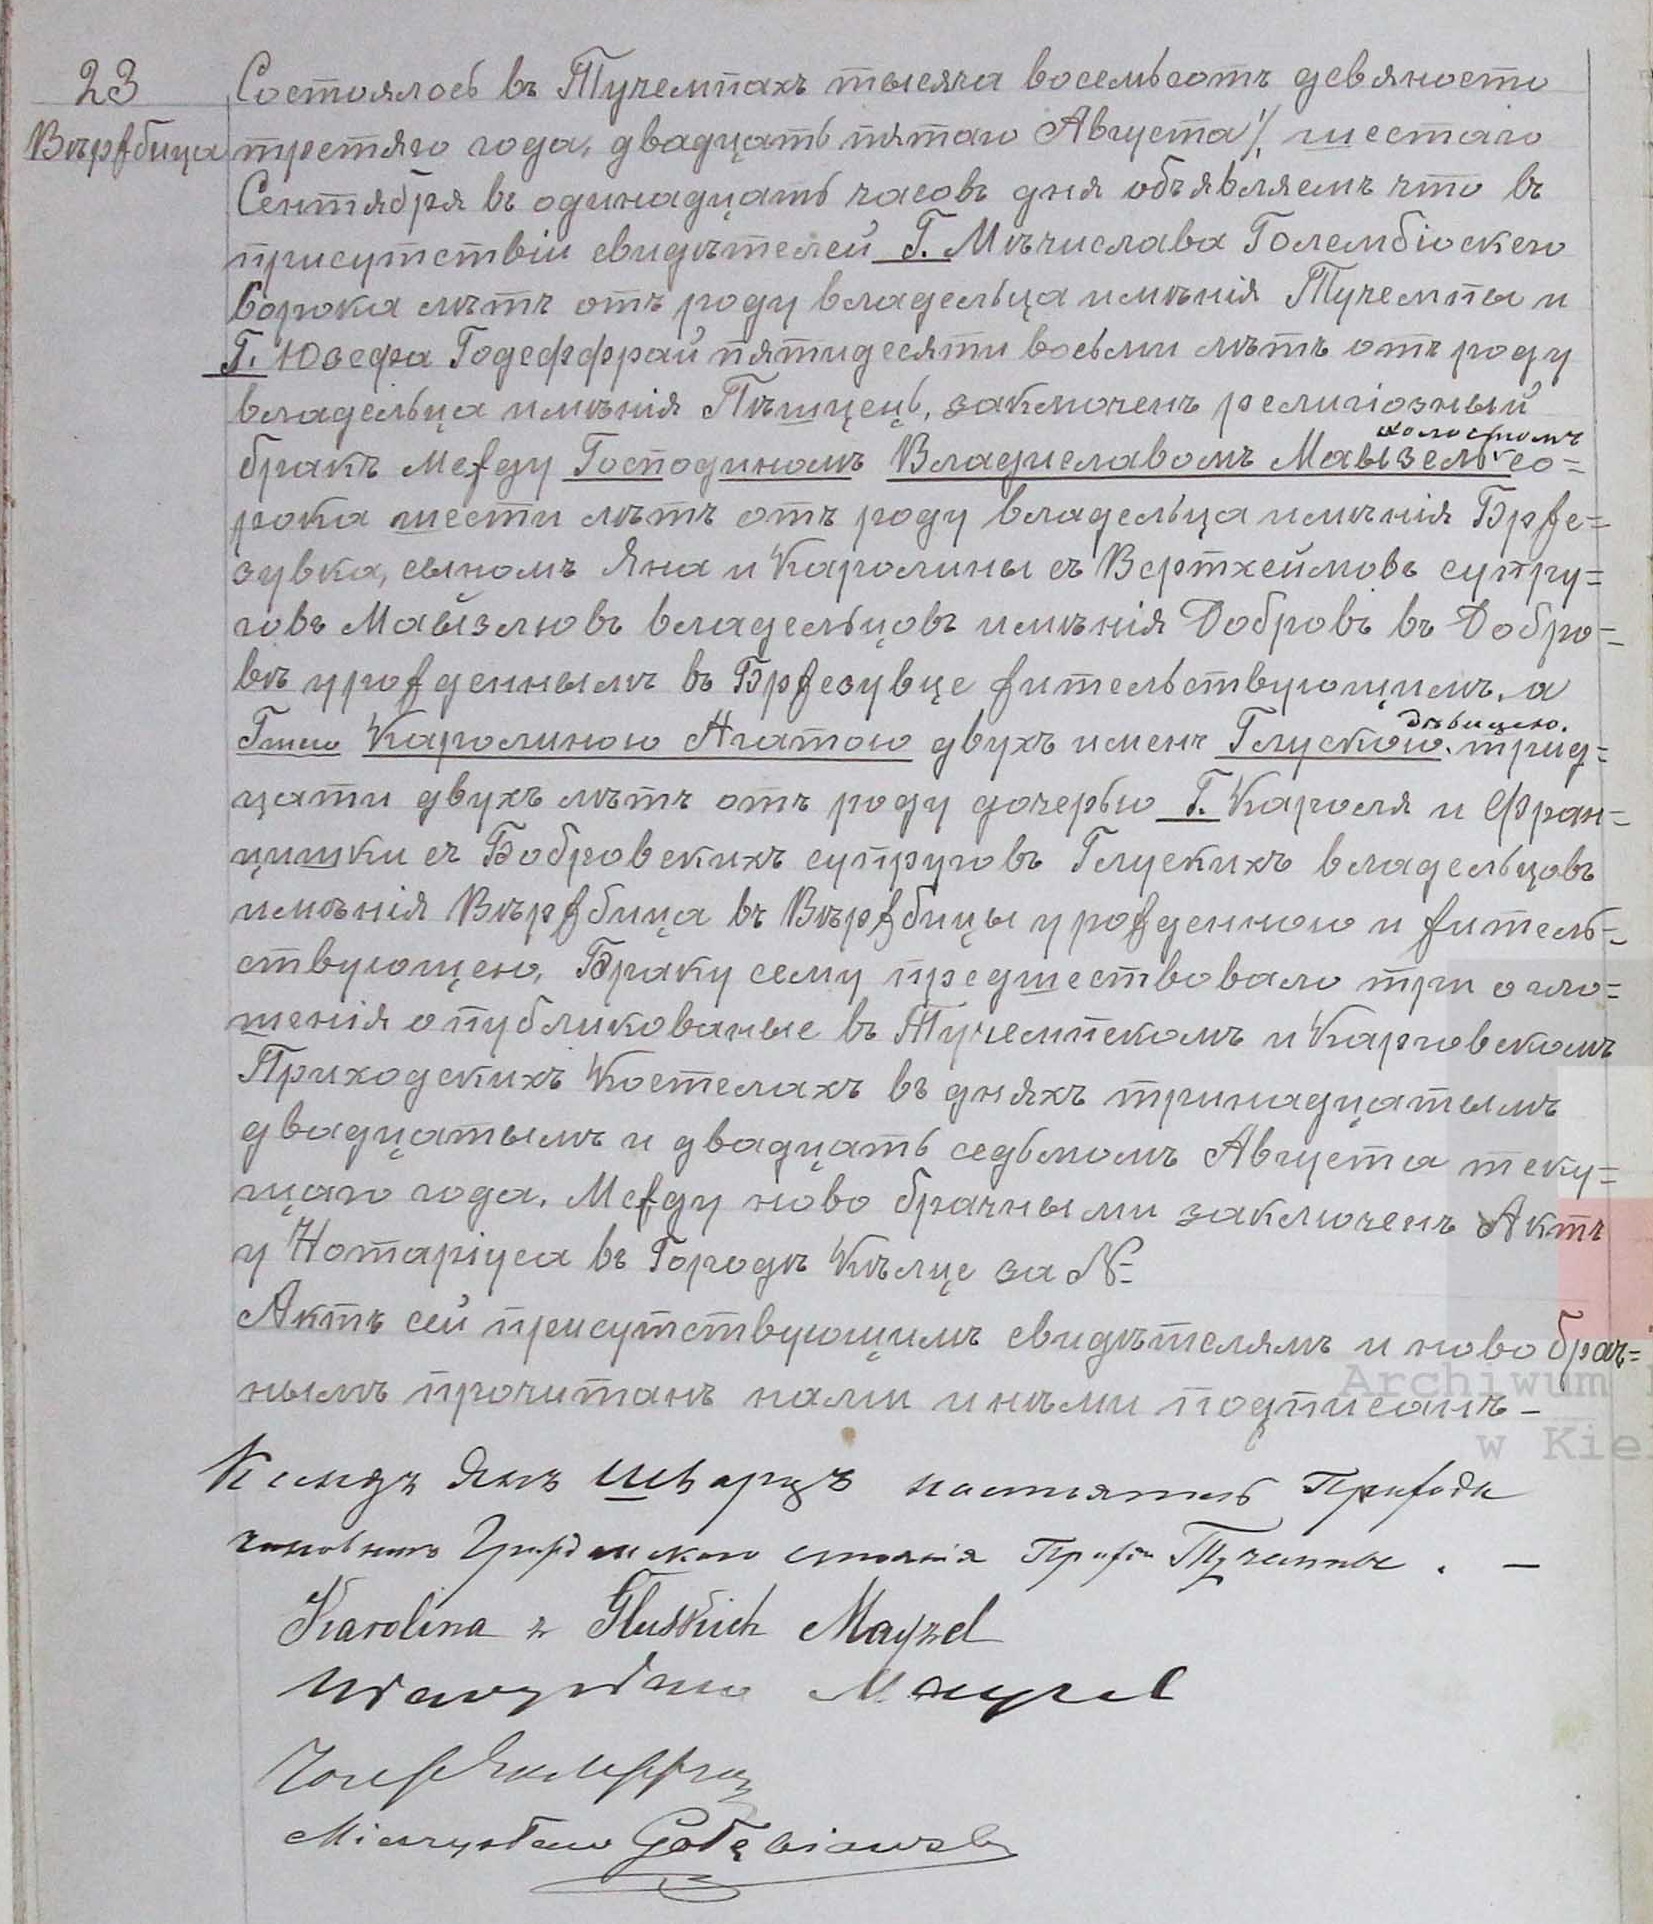 23
Вѣржбица
Состоялось въ Тучемпахъ тысяча восемьсотъ девяносто
третяго года, двадцать пятаго Августа /, шестаго
Сентября въ одинадцать часовъ дня объявляемъ что въ
присутствіи свидѣтелей Г. Мѣчислава Голембіоскего
сорока лѣтъ отъ роду владельца имѣнія Тучемпы и
Г. Юзефа Годеффрай пятидесяти восьми лѣтъ отъ роду
владельца имѣнія Пѣщецъ, заключенъ религіозный
холостымъ
бракъ между Господиномъ Владиславомъ Маызель со=
рока шести лѣтъ отъ роду владельца имѣнія Брже=
зувка, сыномъ Яна и Каролины съ Вертхеймовъ супру=
говъ Маызлювъ владельцовъ имѣнія Добровъ въ Добро=
вѣ урожденнымъ въ Бржезувце жительствующимъ, а
дѣвицею.
Гжею Каролиною Агатою двухъ именъ Глускою. трид=
цати двухъ лѣтъ отъ роду дочерью Г. Кароля и Фран=
цишки съ Бобровскихъ супруговъ Глускихъ владельцовъ
имѣнія Вѣржбица въ Вѣржбицы урожденною и житель=
ствующею, Браку сему предшествовало три огло=
шенія опубликованые въ Тучемпскомъ и Карговскомъ
Приходскихъ Костелахъ въ дняхъ тринадцатымъ
двадцатымъ и двадцать седьмомъ Августа теку=
щаго года. Между ново брачными заключенъ Актъ
у Нотаріуса въ Городѣ Кѣлце за №
Актъ сей присутствующимъ свидѣтелямъ и ново брач=
нымъ прочитанъ нами и ними подписанъ –
Ксендзъ Янъ Шварцъ настоятель Прихода
чиновникъ Гражданскаго стоянія Прих. Тучемпы . –
Karolina z Głuskich Mayzel
Władysław Mayzel
Józef Godeffroy
Mieczysław Gołębiowski
Archiwum
w Kiel